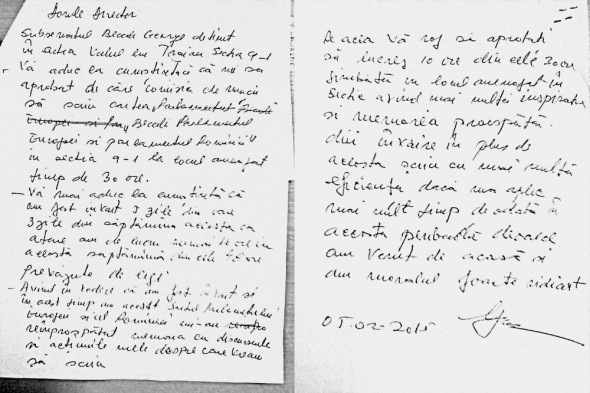 Domnule Director
Subsemnatul Becali George detinut
în sectia Valul lui Traian Sectia 9-1
Vă aduc la cunostintă că mi sa
aprobat de către Comisia de muncă
să scriu cartea Parlamentul
Europei si Becali Parlamentul
Europei si parlamentul României"
în sectia 9-1 la locul amenajat
timp de 30 ore.
- Vă mai aduc la cunostintă că
am fost învoit 5 zile din care
3 zile din săptămîna aceasta ca
atare am de lucru numai
această saptămînă din cele
prevăzute de lege
- Avînd în vedere că am fost învoit si
în acest timp am accesat Parlamentului
Europei si al României mi-am
reîmprospătat memoria cu discursurile
si actiunile mele despre care vreau
să scriu
De acea Vă rog să aprobati
să lucrez 10 ore din cele 30 ore
Sîmbătă în locul amenajat în
Sectie avînd mai multă inspiratie
si memoria proaspătă.
din învoire în plus de
aceasta scriu cu mai multă
eficientă dacă mă aplec
mai mult timp deodată în
aceasta perioadă
am venit de acasă si
am moralul foarte ridicat
05-02-2015